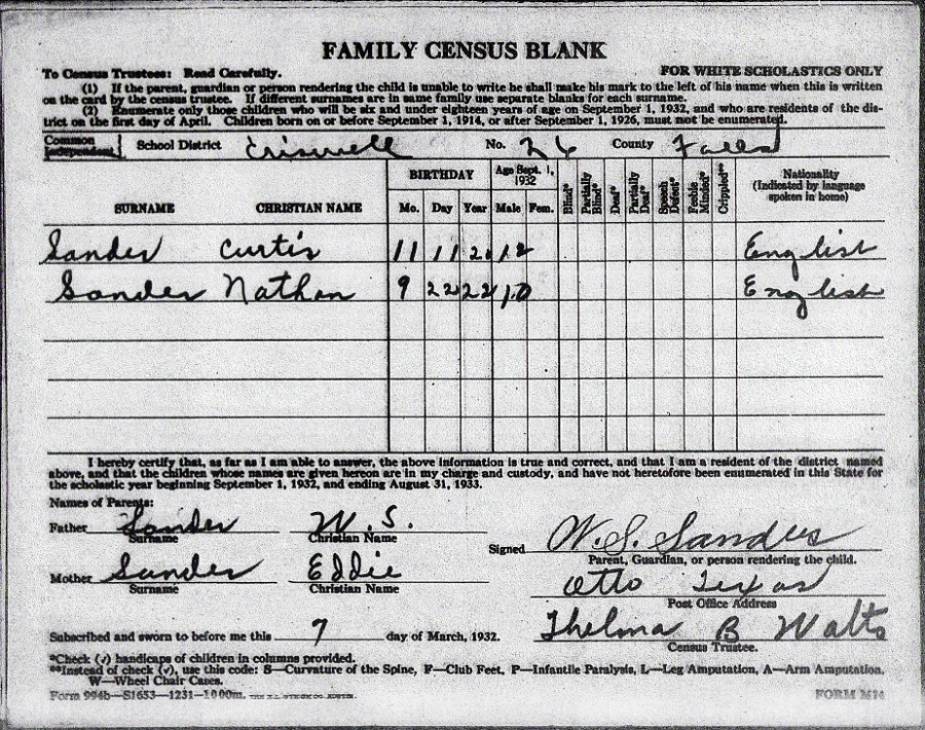 FAMILY CENSUS BLANK
To Census Trustees: Read Carefully. FOR WHITE SCHOLASTICS ONLY
(1) If the parent, guardian or person rendering the child is unable to write he shall make his mark to the left of his name when this is written
on the card by the census trustee. If different surnames are in same family use separate blanks for each surname.
(2) Enumerate only those children who will be six and under eighteen years of age on September 1, 1932, and who are residents of the dis-
trict on the first day of April. Children born on or before September 1, 1914, or after September 1, 1926, must not be enumerated.
Common
Independent School District Criswell No. 26 County Falls
SURNAME CHRISTIAN NAME BIRTHDAY Mo. Day Year Age Sept. 1, 1932 Male Fem. Blind* Partially Blind* Deaf* Partially Deaf* Speech Defect* Feeble Minded* Crippled** Nationality (Indicated by language spoken in home)
Sander Curtis 11 11 20 12 English
Sander Nathan 9 22 22 10 English
I hereby certify that, as far as I am able to answer, the above information is true and correct, and that I am a resident of the district named
above, and that the children whose names are given hereon are in my charge and custody, and have not heretofore been enumerated in this State for
the scholastic year beginning September 1, 1932, and ending August 31, 1933.
Names of Parents:
Father Sander W. S.
Surname Christian Name
Signed W. S. Sanders
Parent, Guardian, or person rendering the child.
Mother Sander Eddie
Surname Christian Name
Otto Texas
Post Office Address
Subscribed and sworn to before me this 7 day of March, 1932. Thelma B Walts
Census Trustee.
*Check (√) handicaps of children in columns provided.
**Instead of check (√), use this code: S—Curvature of the Spine, F—Club Feet, P—Infantile Paralysis, L—Leg Amputation, A—Arm Amputation,
W—Wheel Chair Cases.
Form 994b—S1653—1231—1000m. FORM M74